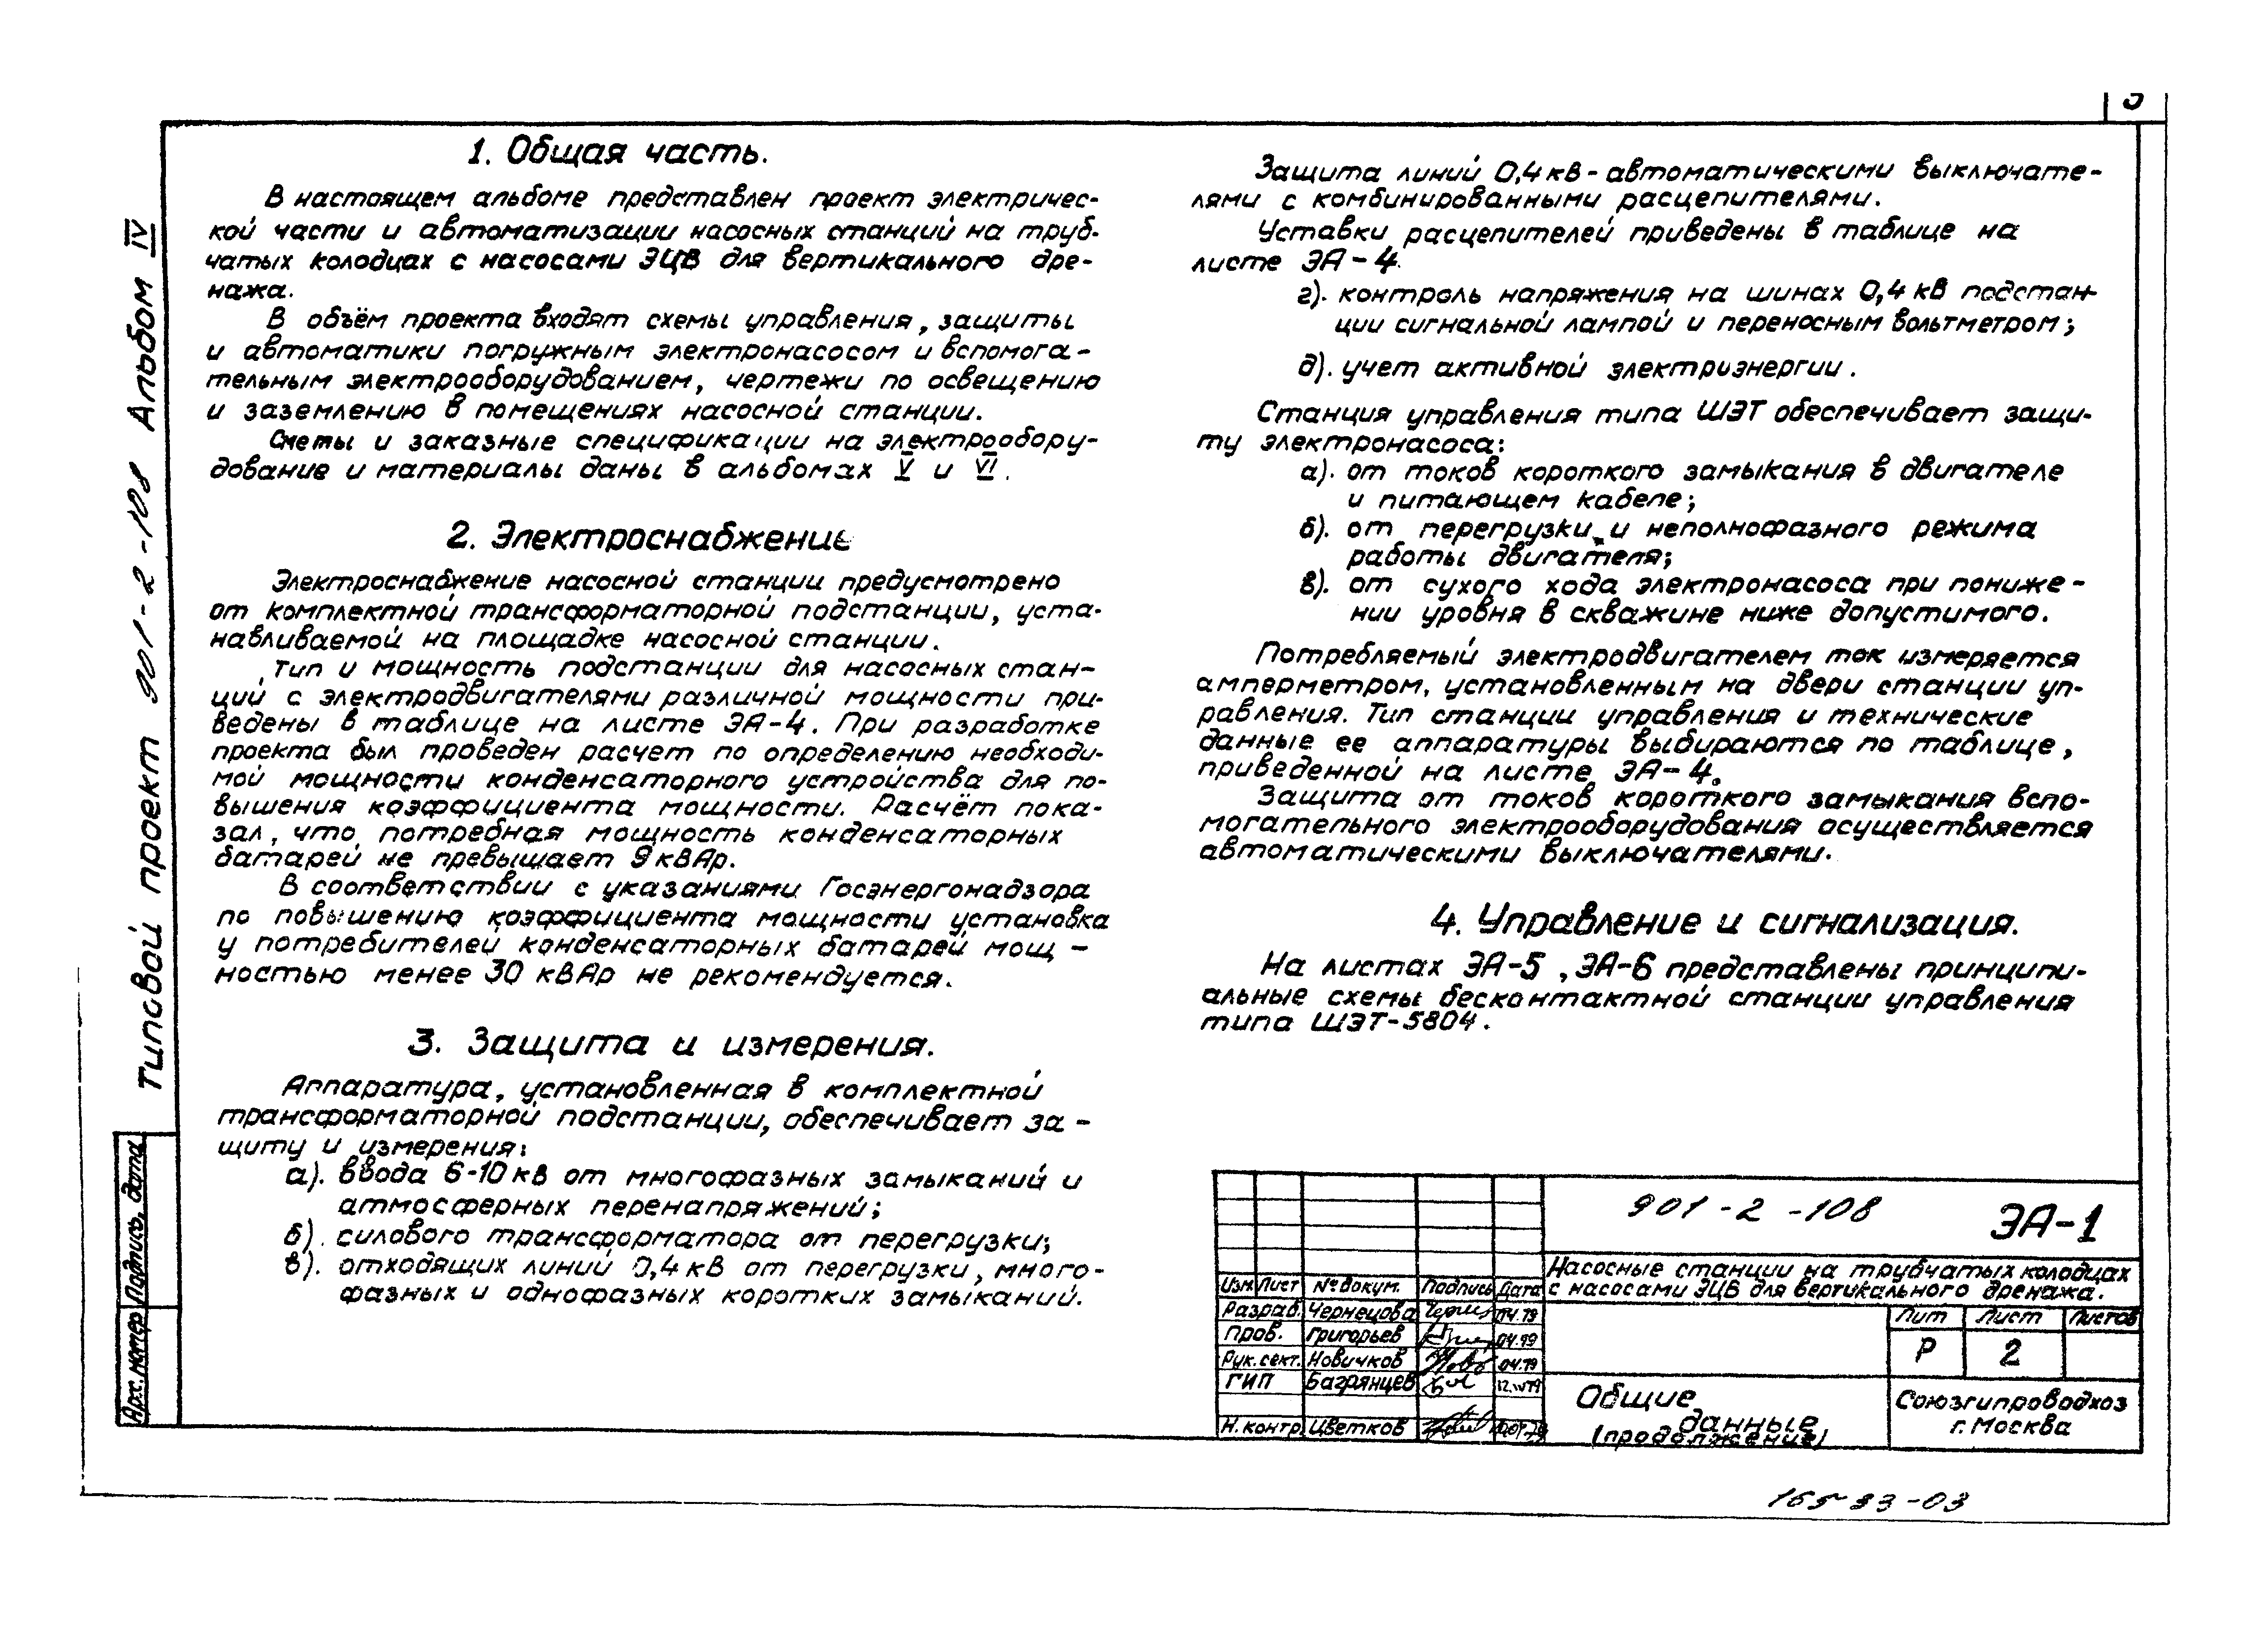 1. Общая часть.
В настоящем альбоме представлен проект электричес-
кой части и автоматизации насосных станций на труб-
чатых колодцах с насосами ЭЦВ для вертикального дре-
нажа.
В объём проекта входят схемы управления, защиты
и автоматики погружным электронасосом и вспомога-
тельным электрооборудованием, чертежи по освещению
и заземлению в помещениях насосной станции.
Сметы и заказные спецификации на электрообору-
дование и материалы даны в альбомах V и VI.
2. Электроснабжение
Электроснабжение насосной станции предусмотрено
от комплектной трансформаторной подстанции, уста-
навливаемой на площадке насосной станции.
Тип и мощность подстанции для насосных стан-
ций с электродвигателями различной мощности при-
ведены в таблице на листе ЭА-4. При разработке
проекта был проведен расчет по определению необходи-
мой мощности конденсаторного устройства для по-
вышения коэффициента мощности. Расчёт пока-
зал, что потребная мощность конденсаторных
батарей не превышает 9 кВАр.
В соответствии с указаниями Госэнергонадзора
по повышению коэффициента мощности установка
у потребителей конденсаторных батарей мощ -
ностью менее 30 кВАр не рекомендуется.
3. Защита и измерения.
Аппаратура, установленная в комплектной
трансформаторной подстанции, обеспечивает за -
щиту и измерения:
а). ввода 6-10 кв от многофазных замыканий и
атмосферных перенапряжений;
б). силового трансформатора от перегрузки;
в). отходящих линий 0,4 кв от перегрузки, много-
фазных и однофазных коротких замыканий.
Защита линий 0,4 кв - автоматическими выключате-
лями с комбинированными расцепителями.
Уставки расцепителей приведены в таблице на
листе ЭА-4.
г). контроль напряжения на шинах 0,4 кв подстан-
ции сигнальной лампой и переносным вольтметром;
д). учет активной электриэнергии.
Станция управления типа ШЭТ обеспечивает защи-
ту электронасоса:
а). от токов короткого замыкания в двигателе
и питающем кабеле;
б). от перегрузки и неполнофазного режима
работы двигателя;
в). от сухого хода электронасоса при пониже-
нии уровня в скважине ниже допустимого.
Потребляемый электродвигателем ток измеряется
амперметром, установленным на двери станции уп-
равления. Тип станции управления и технические
данные ее аппаратуры выбираются по таблице,
приведенной на листе ЭА-4.
Защита от токов короткого замыкания вспо-
могательного электрооборудования осуществляется
автоматическими выключателями.
4. Управление и сигнализация.
На листах ЭА-5, ЭА-6 представлены принципи-
альные схемы бесконтактной станции управления
типа ШЭТ-5804.
Типовой проект 901-2-108 Альбом IV
Арх. номер Подпись, дата
901-2-108 ЭА-1
Насосные станции на трубчатых колодцах
с насосами ЭЦВ для вертикального дренажа.
Изм. Лист № докум. Подпись Дата
Разраб. Чернецова 04.79
Пров. Григорьев 04.79
Рук. сект. Новичков 04.79
ГИП Багрянцев
Н. контр. Цветков
Лит Лист Листов
Р 2
Общие
данные
(продолжение)
Союзгипроводхоз
г. Москва